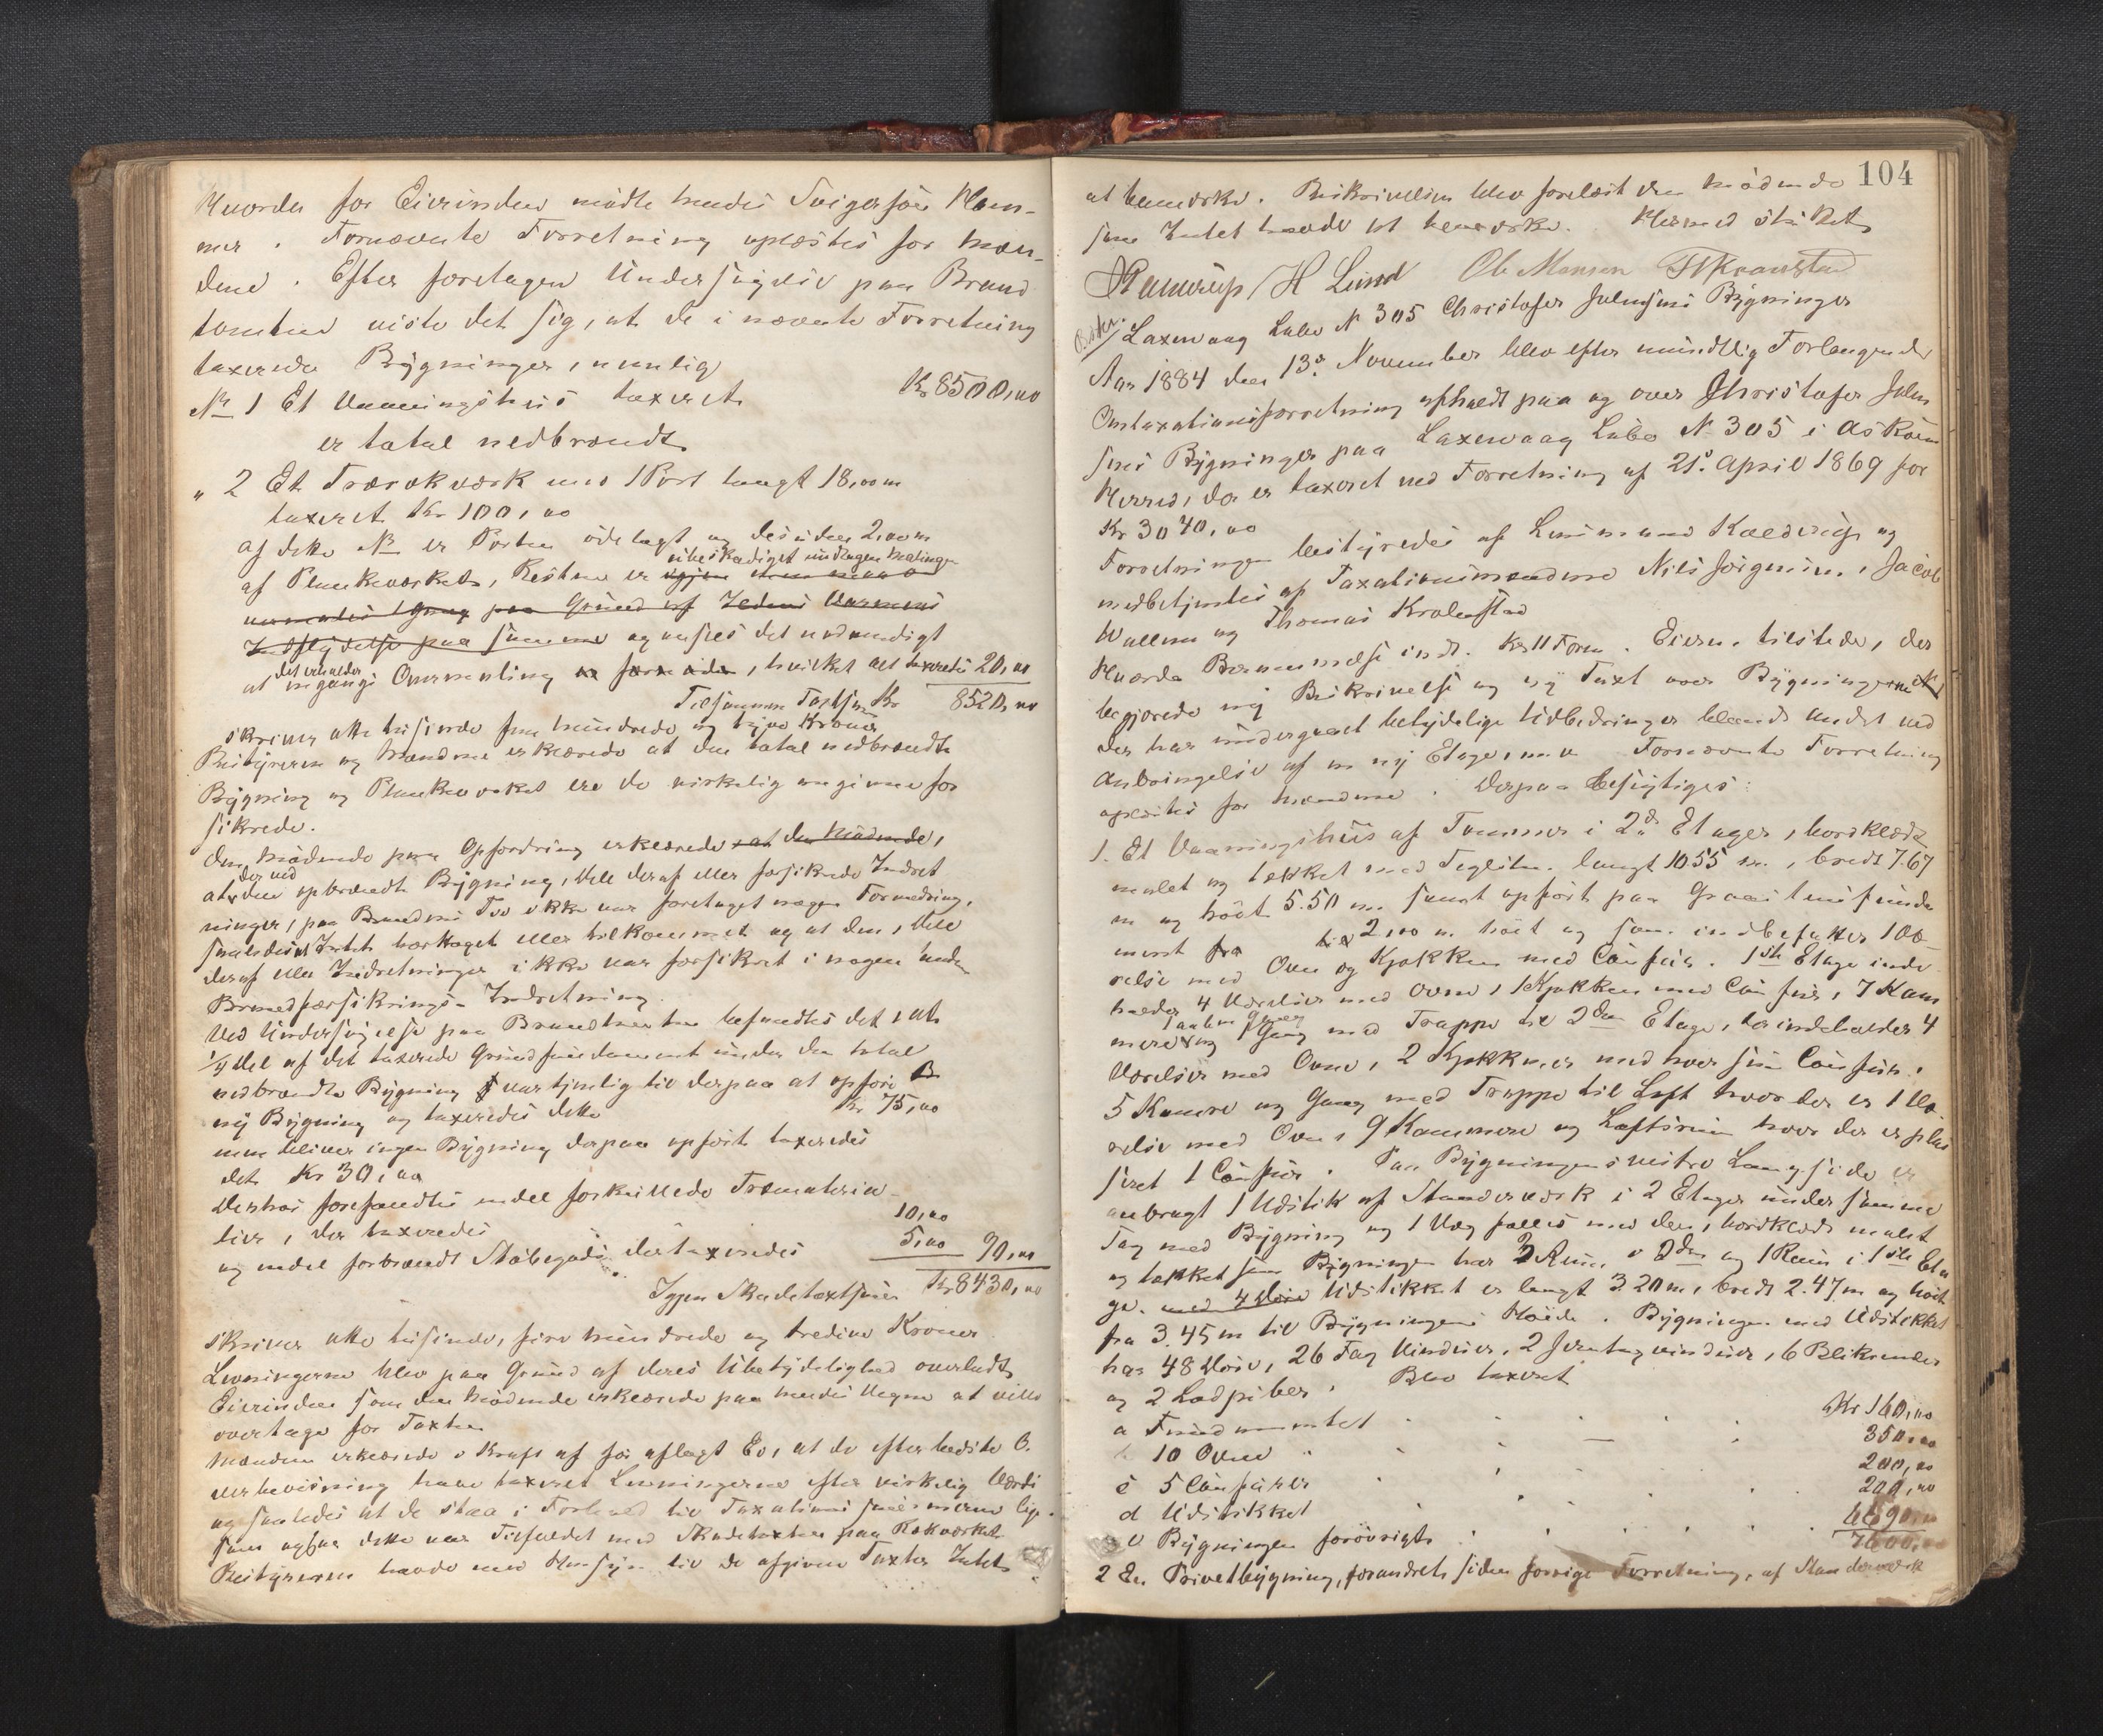 Hvorda for Eierinden mödte hendes Svigersön Ham-
mer. Fornævnte Forretning oplæstes for Mæn-
dene. Efter foretagen Undersögelse paa Brand
tomten viste det sig, at de i nævnte Forretning
taxerede Bygninger, nemlig
No 1 Et Vaaningshus taxeret Kr 8500,00
er total nedbrændt
" 2 Et Træræckværk med 1 Port langt 18,00 m
taxeret Kr 100,00
af dette No er Porten ödelagt og desuden 2,00 m
af Plankeværket, Resten er ubeskadiget undtagen Malingen
paa Grund af
paa samme og ansees det nödvendigt
at det erholder en gangs Overmaling, hvilket alt taxeredes 20,00
Tilsammen Kr 8520,00
skriver otte tusinde fem hundrede og tyve Kroner
Bestyreren og Mændene erklærede at den total nedbrændte
Bygning og Plankeværket ere de virkelig angivne for
sikrede.
Den Mödende paa Opfordring erklærede at den Mödende,
at der ved den opbrændte Bygning, Dele deraf eller forsikrede Indret
ninger, paa Brandens Tid ikke var foretaget nogen Forandring,
saaledes at Intet borttaget eller tilkommet og at den, Dele
deraf eller Indretninger ikke var forsikret i nogen anden
Brandforsikrings-Indretning.
Ved Undersögelse paa Brandtomten befandtes det, at
1/4 Del af det taxerede Grundfundament under den total
nedbrændte Bygning var tjenlig til derpaa at opföre
ny Bygning og taxeredes dette Kr 75,00
men bliver ingen Bygning derpaa opfört taxeredes
det Kr 30,00
Derhos forefandtes endel forkullede Træmateria-
lier, der taxeredes 10,00
og endel forbrændt Stöbegods der taxeredes 5,00 90,00
Igjen Skadetaxtsum Kr 8430,00
skriver otte tusinde, fire hundrede og tredive Kroner.
Levningerne blev paa Grund af deres Ubetydelighed overladt
Eierinden som den Mödende erklærede paa hendes Vegne at ville
overtage for Taxten
Mændene erklærede i Kraft af för aflagt Ed, at de efter bedste O-
verbevisning have taxeret Levningerne efter virkelig Værdi
og saaledes at de staa i Forhold til Taxationssummerne lige-
som ogsaa dette var Tilfældet med Skadetaxten paa Rækværket
Bestyreren havde med Hensyn til de afgivne Taxter Intet
104
at bemærke. Beskrivelsen blev forelæst den Mödende
som Intet havde at bemærke. Hermed sluttet
H Lund Ole Monsen
Laxevaag Lübe N 305 Christofer Johnsens Bygninger
Aar 1884 den 13de November blev efter mundtlig Forlangende
Omtaxationsforretning afholdt paa og over Christofer John
sens Bygninger paa Laxevaag Lübe No 305 i Askøens
Herred, der er taxeret ved Forretning af 21de April 1869 for
Kr 3040,00
Forretningen bestyredes af Lensmand og
medbetjentes af Taxationsmændene Nils Jörgensen, Jacob
Wallem og Thomas Krohnstad
Hvorda Bemaning indt. Eieren tilstede, der
begjærede ny Beskrivelse og ny Taxt over Bygningerne
der har undergaaet betydelige Udbedringer blandt andet ved
Anbringelse af en ny Etage, m. v. Fornævnte Forretning
oplæstes for Mændene. Derpaa besigtiges:
1. Et Vaaningshus af Tømmer i 2de Etager, bordklædt
malet og tækket med Teglsten. langt 10.55 m., bredt 7.67
m og höit 5.50 m. samt opfört paa Graastensfunda
ment fra til 2,00 m. höit og som indbefatter 1 Væ-
relse med Ovn og Kjøkken med Comfur. 1ste Etage inde
holder 4 Værelser med Ovne, 1 Kjøkken med Comfur, 7 Kam
mere og 1 Gang med Trappe til 2den Etage, der indeholder 4
Værelser med Ovne, 2 Kjøkkener med hver sin Comfur,
5 Kamre og Gang med Trappe til Loft hvor der er 1 Væ-
relse med Ovn, 9 Kammere og Loftsrum hvor der er pla
seret 1 Comfur. Paa Bygningens vestre Langside er
anbragt 1 Udstik af Standerværk i 2 Etager under samme
Tag med Bygning og 1 Væg fælles med den, bordklædt malet
og tækket som Bygningen har 2 Rum i 2den og 1 Rum i 1ste Eta
ge. med 4 Döre Udstikket er langt 3.20 m, bredt 2.47 m og höit
fra 3.45 m til Bygningens Höide. Bygningen med Udstikket
har 48 Döre, 26 Fag Vinduer, 2 Jerntagvinduer, 6 Blikrender
og 2 Lodpiber. Blev taxeret
a Fundamentet Kr 160,00
b 10 Ovne 350,00
c 5 Comfurer 200,00
d Udstikket 200,00
e Bygningen forövrigt 6690,00
7600,00
2 En Privetbygning, forandret siden forrige Forretning, af Standerværk